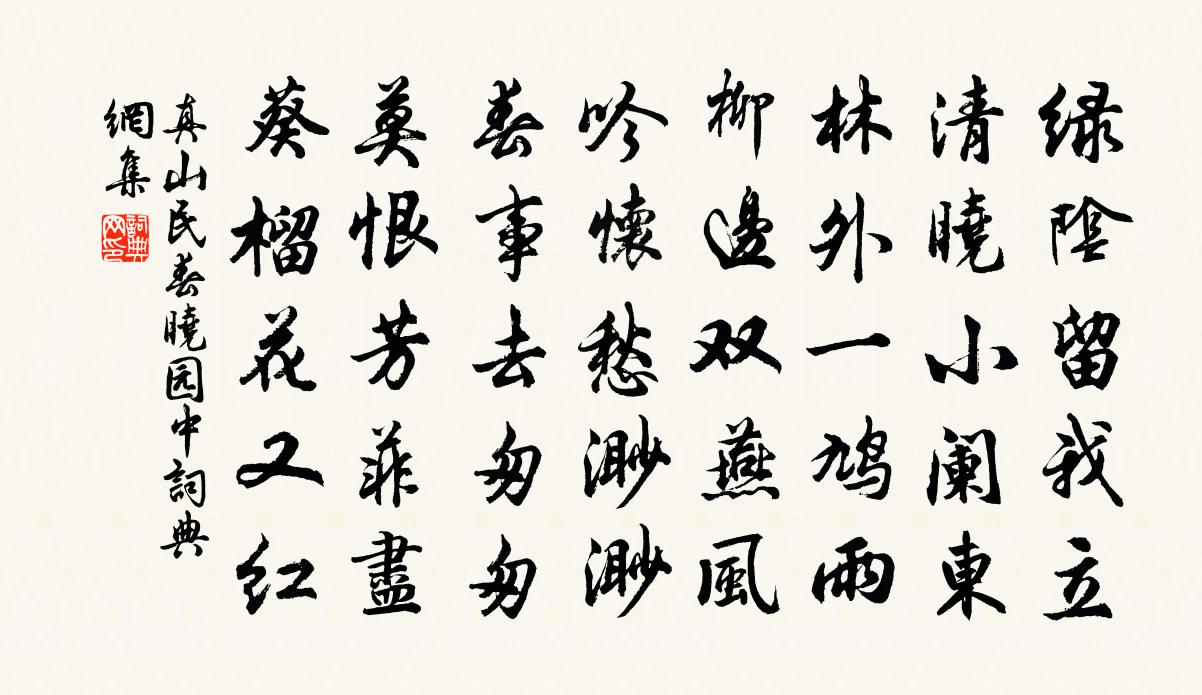 绿阴留我立
清晓小阑東
林外一鸠雨
柳邊双燕風
吟懷愁渺渺
春事去匆匆
莫恨芳菲盡
葵榴花又红
真山民春晓园中詞典
網集
詞典網印